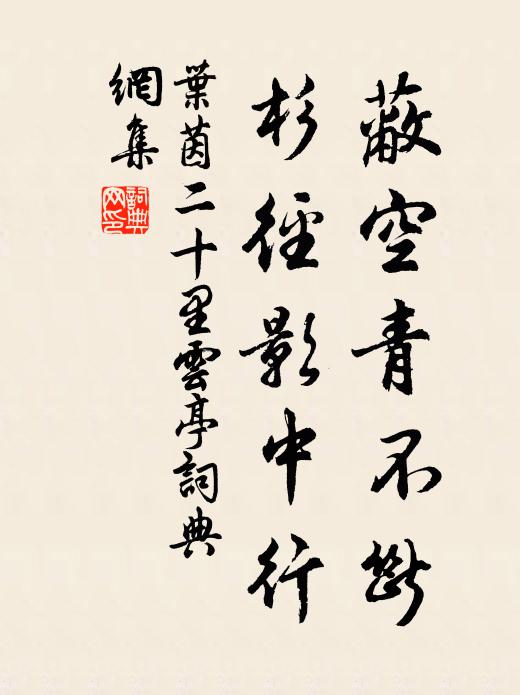 蔽空青不斷
杉徑影中行
葉茵二十里雲亭詞典
網集
詞典
网印